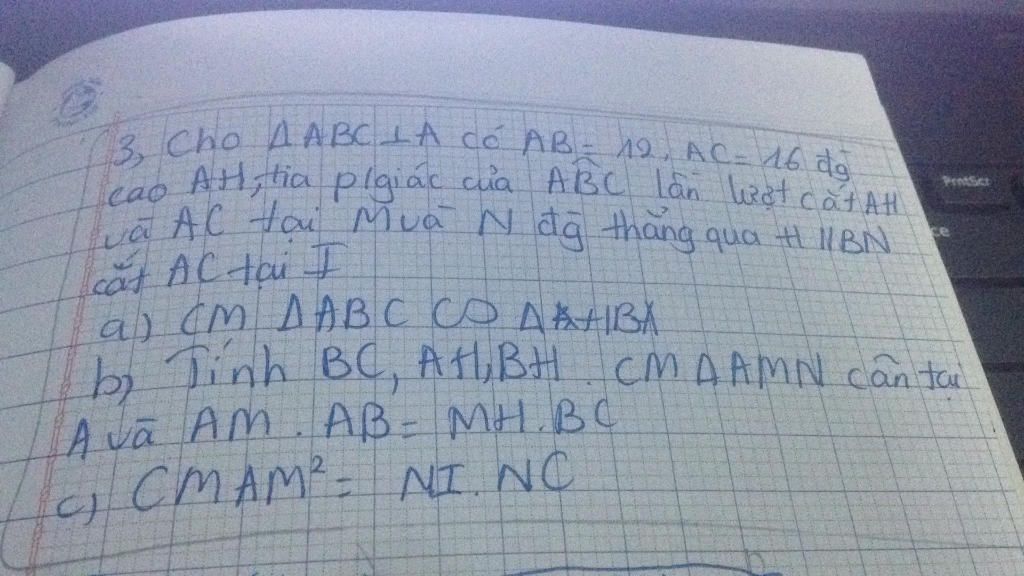 3, Cho ΔABC⊥A có AB = 12, AC = 16 đg
cao AH, tia p/giác của ABC lần lượt cắt AH
và AC tại M và N đg thẳng qua H // BN
cắt AC tại I
a) CM ΔABC ∽ ΔHBA
b) Tính BC, AH, BH. CM ΔAMN cân tại
A và AM . AB = MH . BC
c) CM AM² = NI . NC
PrntScr